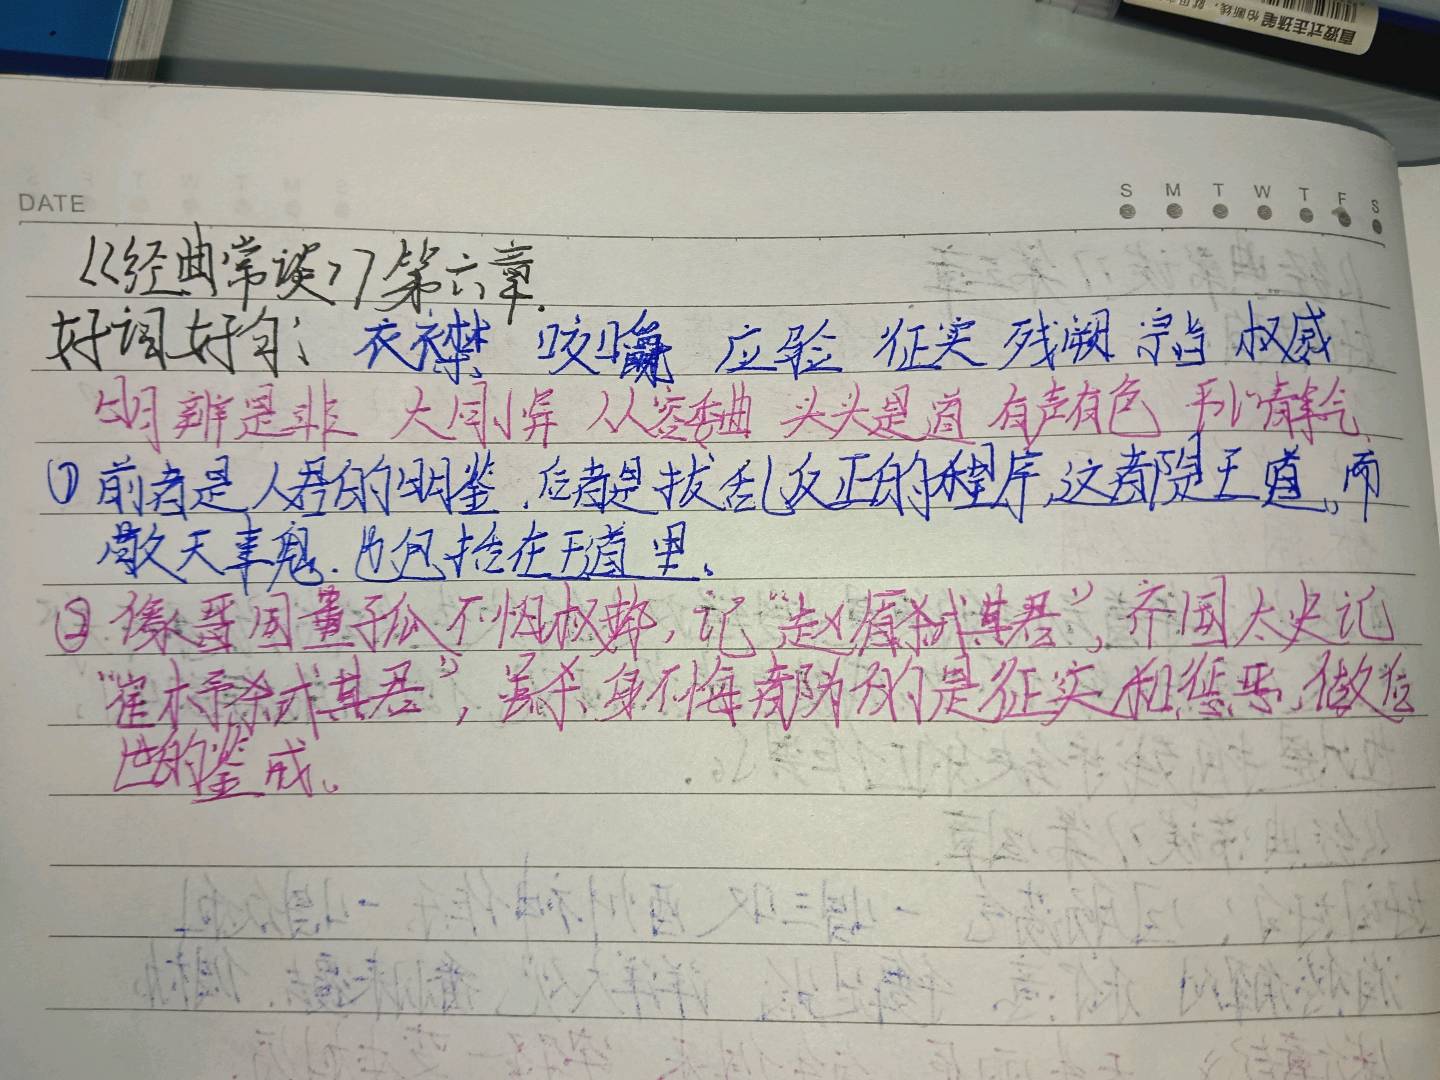 直液式走珠笔
DATE
S M T W T F S
《经典常谈》第六章.
好词好句: 衣襟 咀嚼 应验 征实 残阙 宗旨 权威
明辨是非 大同小异 从容委曲 头头是道 有声有色 平心静气
① 前者是人君的明鉴,后者是拔乱反正的程序,这都是王道,而
敬天事鬼.也包括在王道里.
② 像晋国董狐不怕权势,记"赵盾弑其君",齐国太史记
"崔杼弑其君",虽杀身不悔都为的是征实和惩恶,做后
世的鉴戒.